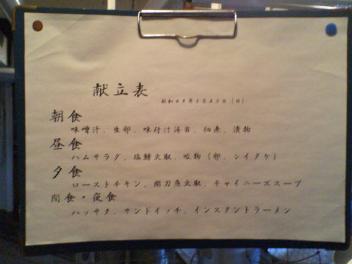 献立表
朝食
味噌汁、生卵、味付け海苔、納豆、漬物
昼食
ハムサラダ、塩鮭、吸物(卵、シイタケ)
夕食
ローストチキン、チャイニーズスープ
間食・夜食
ハッサク、サンドイッチ、インスタントラーメン